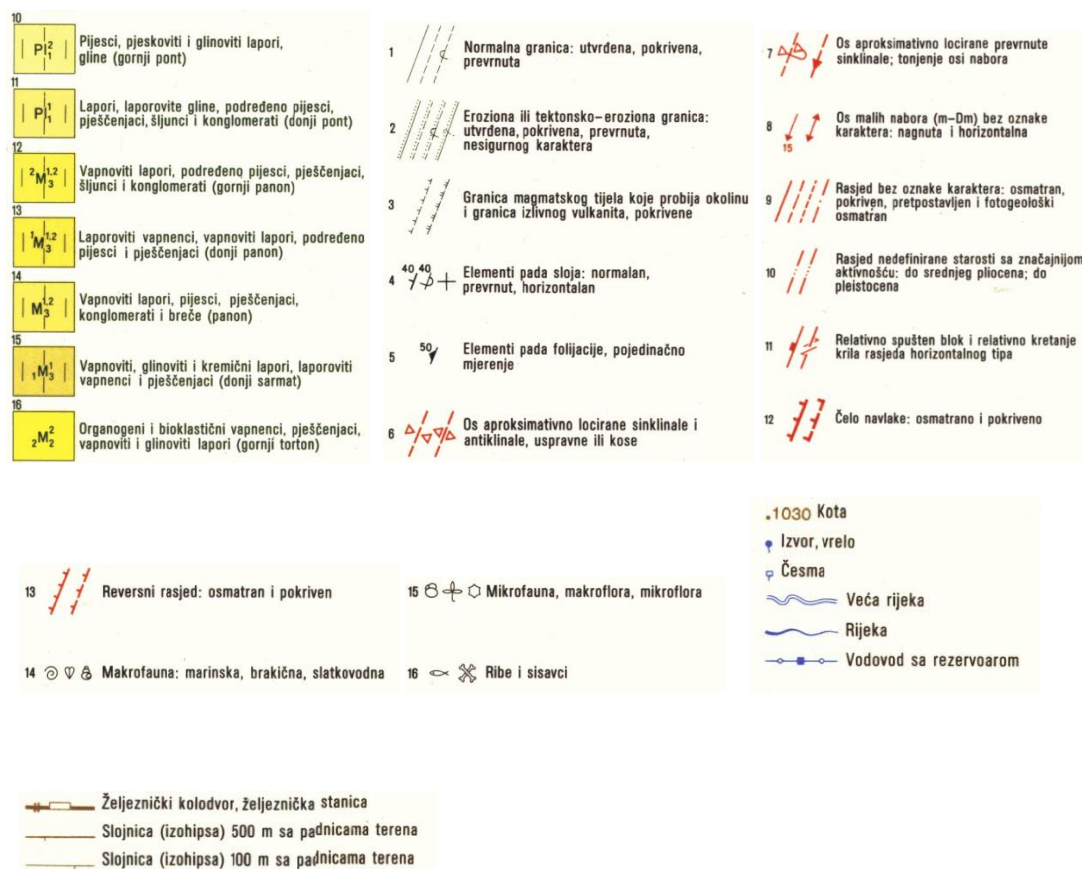 10
Pl₁²
Pijesci, pjeskoviti i glinoviti lapori,
gline (gornji pont)
11
Pl₁¹
Lapori, laporovite gline, podređeno pijesci,
pješčenjaci, šljunci i konglomerati (donji pont)
12
²M₃¹,²
Vapnoviti lapori, podređeno pijesci, pješčenjaci,
šljunci i konglomerati (gornji panon)
13
¹M₃¹,²
Laporoviti vapnenci, vapnoviti lapori, podređeno
pijesci i pješčenjaci (donji panon)
14
M₃¹,²
Vapnoviti lapori, pijesci, pješčenjaci,
konglomerati i breče (panon)
15
₁M₃¹
Vapnoviti, glinoviti i kremični lapori, laporoviti
vapnenci i pješčenjaci (donji sarmat)
16
₂M₂²
Organogeni i bioklastični vapnenci, pješčenjaci,
vapnoviti i glinoviti lapori (gornji torton)
1
Normalna granica: utvrđena, pokrivena,
prevrnuta
2
Eroziona ili tektonsko-eroziona granica:
utvrđena, pokrivena, prevrnuta,
nesigurnog karaktera
3
Granica magmatskog tijela koje probija okolinu
i granica izlivnog vulkanita, pokrivene
4
40 40
Elementi pada sloja: normalan,
prevrnut, horizontalan
5
50
Elementi pada folijacije, pojedinačno
mjerenje
6
Os aproksimativno locirane sinklinale i
antiklinale, uspravne ili kose
7
Os aproksimativno locirane prevrnute
sinklinale; tonjenje osi nabora
8
15
Os malih nabora (m-Dm) bez oznake
karaktera: nagnuta i horizontalna
9
Rasjed bez oznake karaktera: osmatran,
pokriven, pretpostavljen i fotogeološki
osmatran
10
Rasjed nedefinirane starosti sa značajnijom
aktivnošću: do srednjeg pliocena; do
pleistocena
11
Relativno spušten blok i relativno kretanje
krila rasjeda horizontalnog tipa
12
Čelo navlake: osmatrano i pokriveno
13
Reversni rasjed: osmatran i pokriven
14
Makrofauna: marinska, brakična, slatkovodna
15
Mikrofauna, makroflora, mikroflora
16
Ribe i sisavci
.1030 Kota
Izvor, vrelo
Česma
Veća rijeka
Rijeka
Vodovod sa rezervoarom
Željeznički kolodvor, željeznička stanica
Slojnica (izohipsa) 500 m sa padnicama terena
Slojnica (izohipsa) 100 m sa padnicama terena